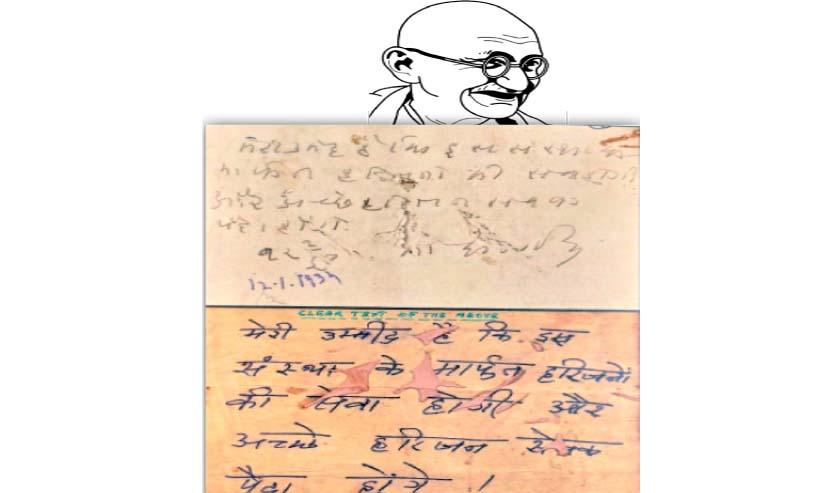 मेरी उम्मीद है कि इस संस्था के
मार्फत हरिजनों की सेवा होगी
और अच्छे हरिजन सेवक
पैदा होंगे.
12.1.1934
CLEAR TEXT OF THE ABOVE
मेरी उम्मीद है कि इस
संस्था के मार्फत हरिजनों
की सेवा होगी और
अच्छे हरिजन सेवक
पैदा होंगे ।